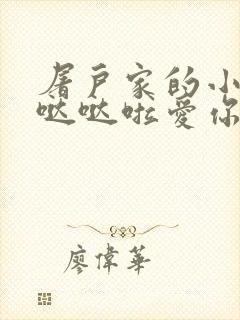 屠户家的小
哒哒啦爱你
廖偉華